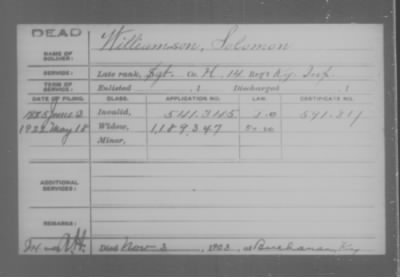 DEAD
NAME OF SOLDIER: Williamson, Solomon
SERVICE: Late rank, Sgt. Co. H, 14 Reg't Ky. Inf.
TERM OF SERVICE: Enlisted , 1 Discharged , 1
DATE OF FILING. CLASS. APPLICATION NO. LAW. CERTIFICATE NO.
1885 June 2 Invalid, 541.345
1922 May 18 Widow, 1,189,347
Minor,
ADDITIONAL SERVICES:
REMARKS:
Died Nov 3, 1903, at Buchanan, Ky